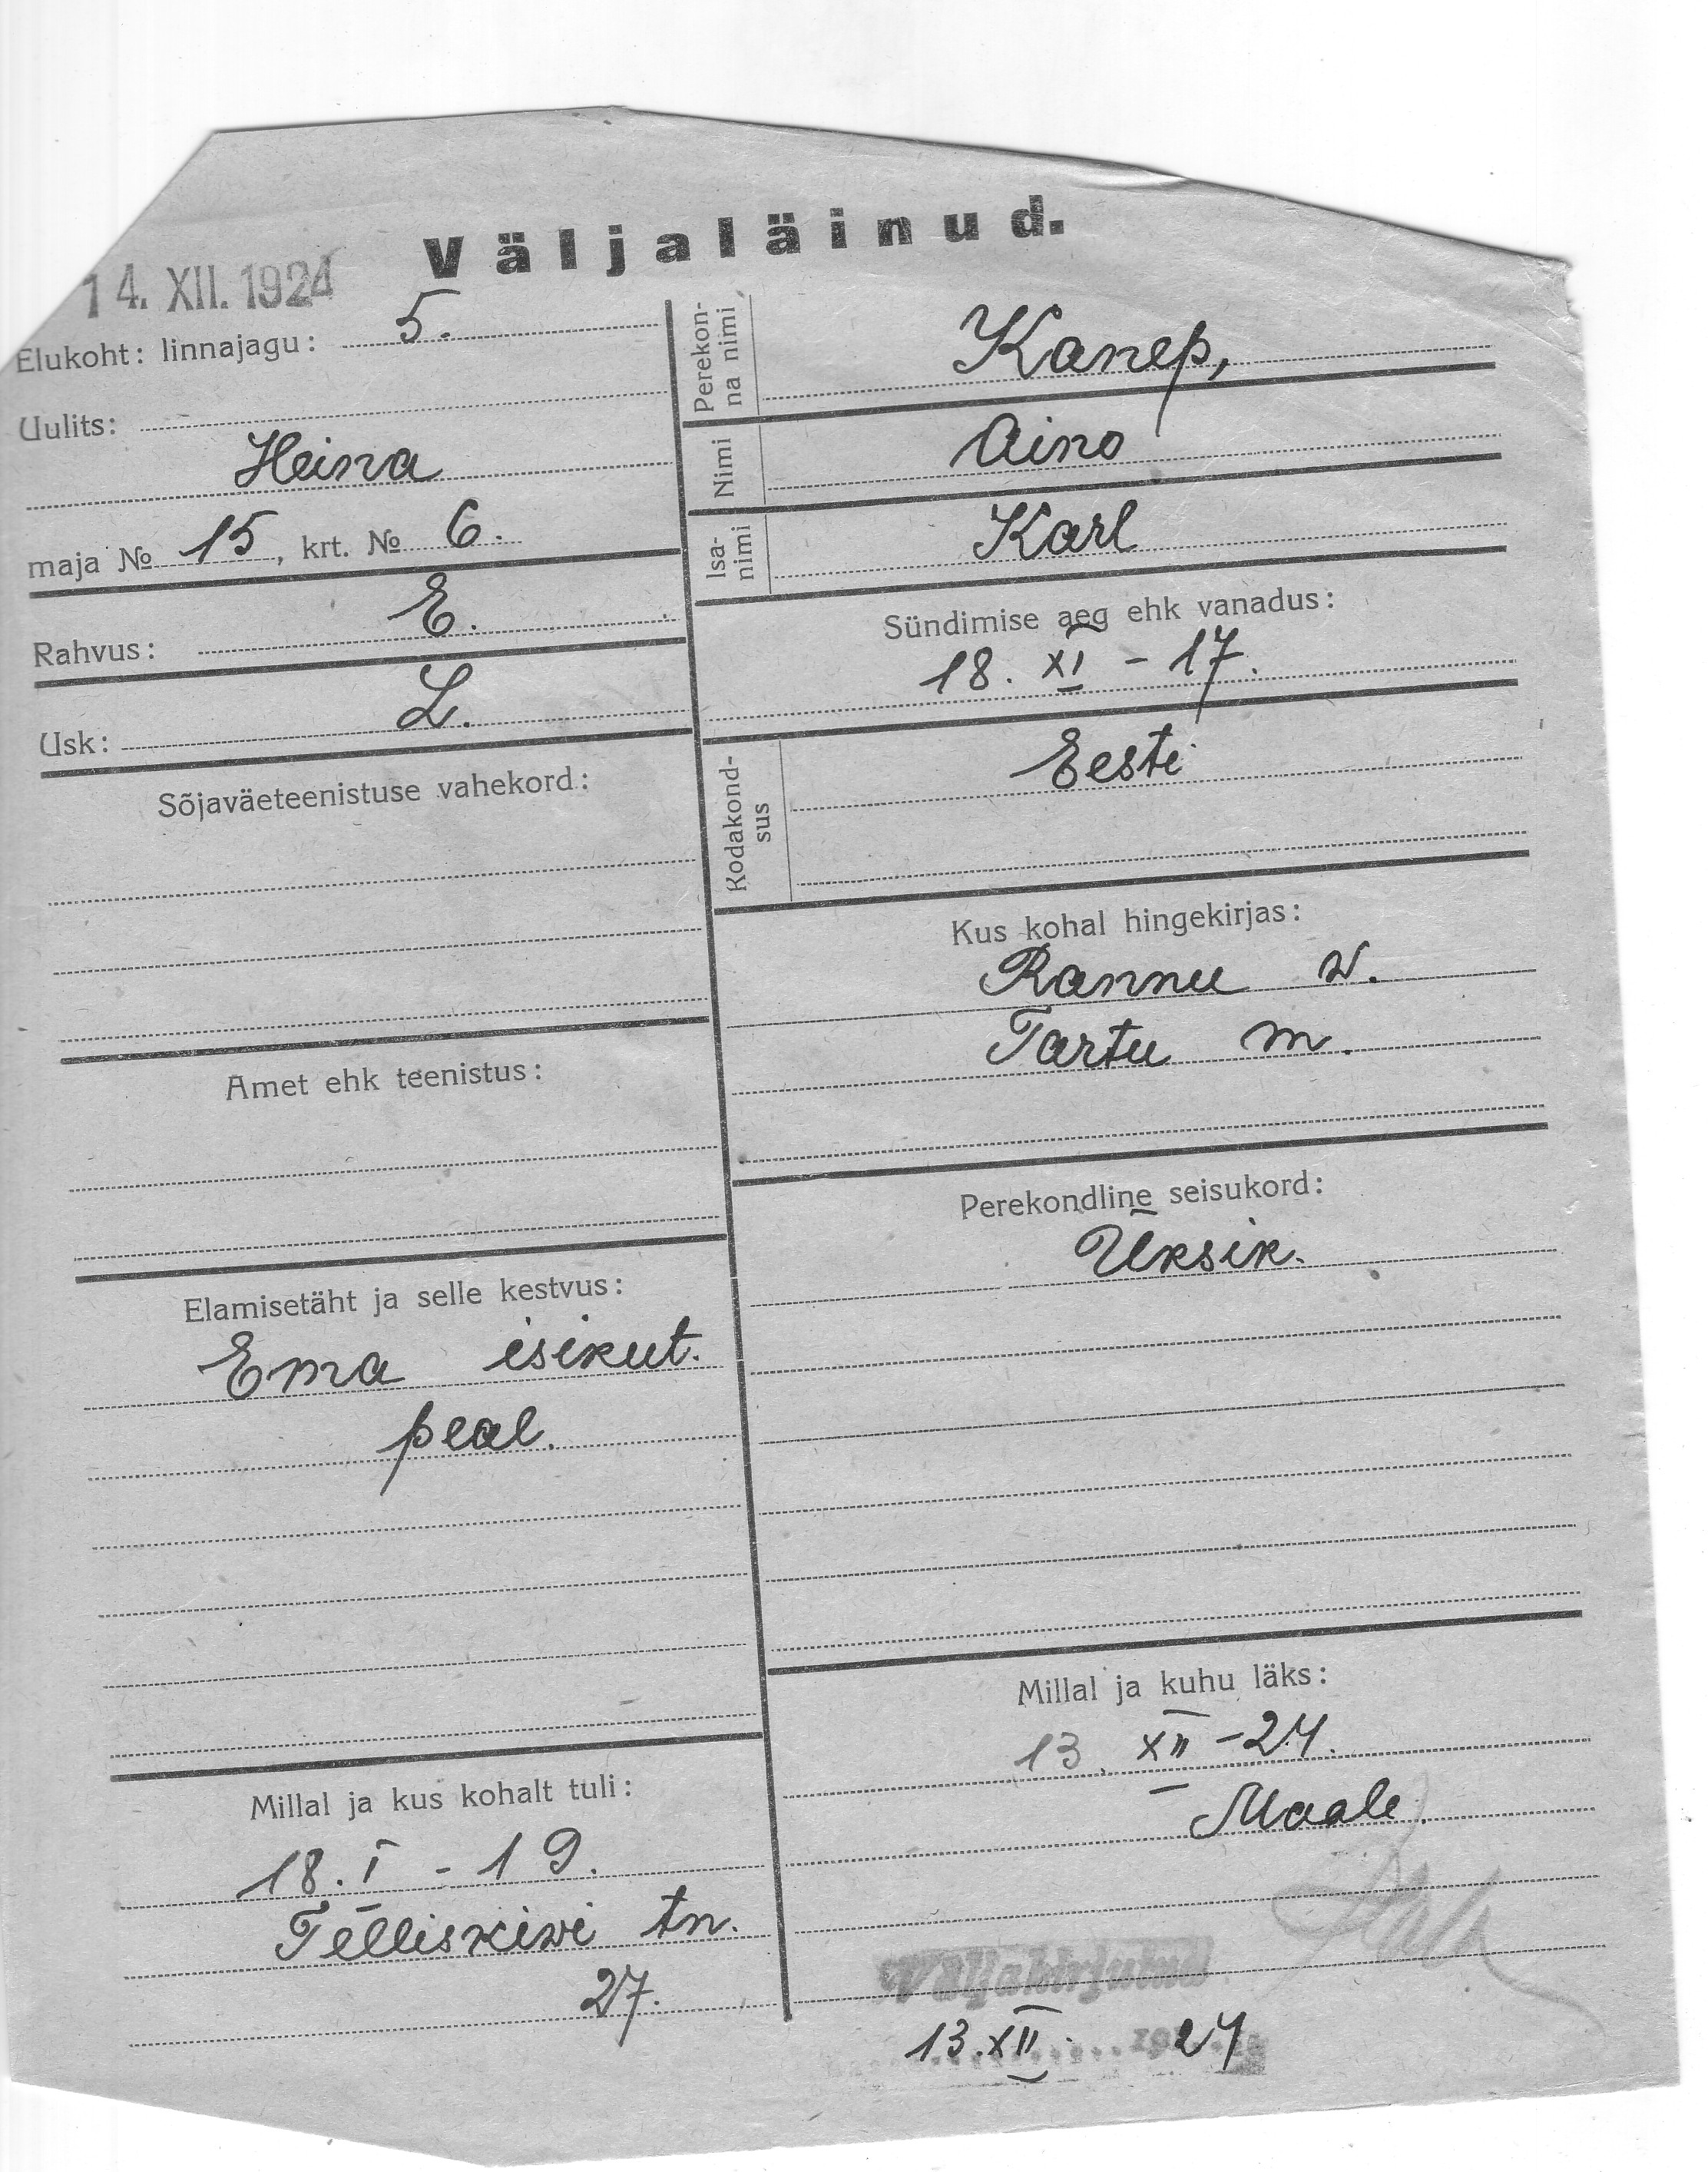 Väljaläinud.
14. XII. 1924
Elukoht: linnajagu: 5.
Uulits:
Heina
maja № 15, krt. № 6.
Rahvus: E.
Usk: L.
Sõjaväeteenistuse vahekord:
Amet ehk teenistus:
Elamisetäht ja selle kestvus:
Ema isikut.
peal.
Millal ja kus kohalt tuli:
18. I - 19.
Telliskiwi tn.
27.
Perekon-
na nimi
Kanep,
Nimi Aino
Isa-
nimi
Karl
Sündimise aeg ehk vanadus:
18. XI - 17.
Kodakond-
sus
Eesti
Kus kohal hingekirjas:
Rannu w.
Tartu m.
Perekondline seisukord:
Üksik.
Millal ja kuhu läks:
13. XII - 24.
Maale.
Väljakirjutud
13. XII 192 24